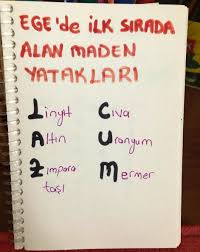 EGE'de İLK SIRADA
ALAN MADEN
YATAKLARI
Linyit
Altın
Zımpara
taşı
Civa
Uranyum
Mermer